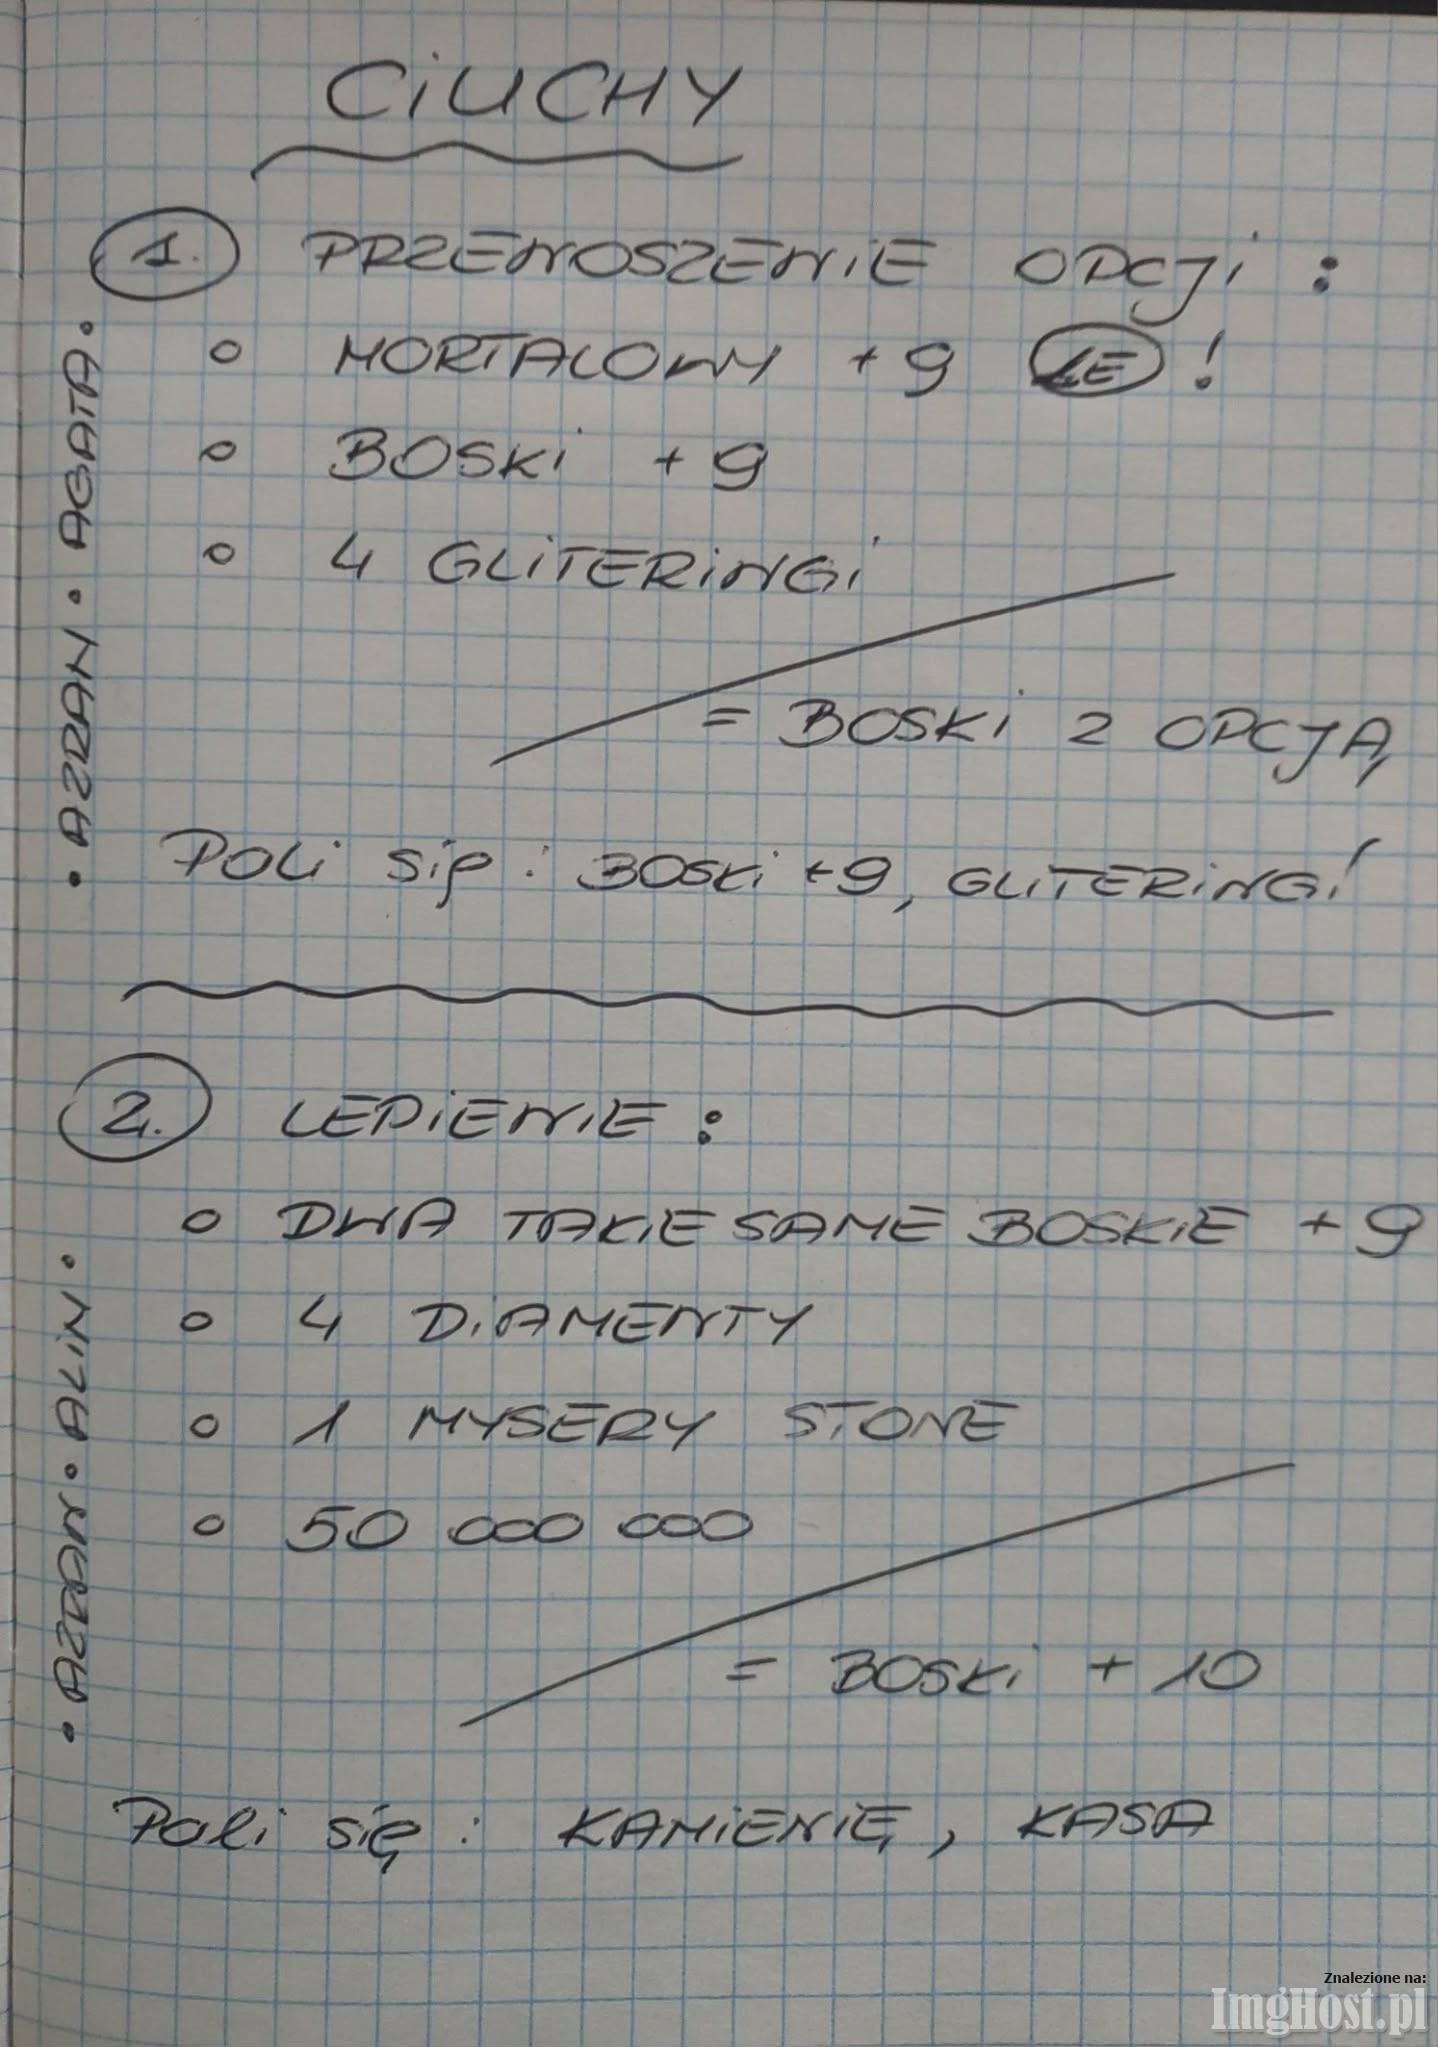 CIUCHY
1. PRZENOSZENIE OPCJI :
• AZRAN • AGATA •
o MORTALOWY +9 LE !
o BOSKI +9
o 4 GLITERINGI
= BOSKI Z OPCJĄ
Poli się : BOSKI +9, GLITERINGI
2. LEPIENIE :
• AZRAN • ALIN •
o DWA TAKIE SAME BOSKIE +9
o 4 DIAMENTY
o 1 MYSERY STONE
o 50 000 000
= BOSKI + 10
Pali się : KAMIENIĘ, KASA
Znalezione na:
ImgHost.pl